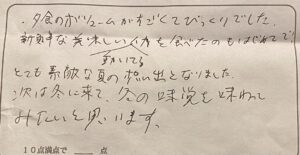 ・夕食のボリュームがすごくてびっくりでした。
新鮮な美味しい
を食べたのもはじめてで
動いてる
とても素敵な夏の想い出となりました。
次は冬に来て、冬の味覚を味わって
みたいと思います。
10点満点で 点